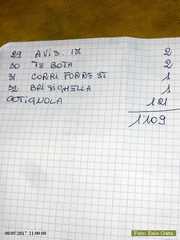 29 AVIS. IX 2
30 75 BOTA 2
31 CORRI FORREST 1
32 BRISIGHELLA 1
COTIGNOLA 121
1109
09/07/2017 11:00:08
Foto: Enzo Casta